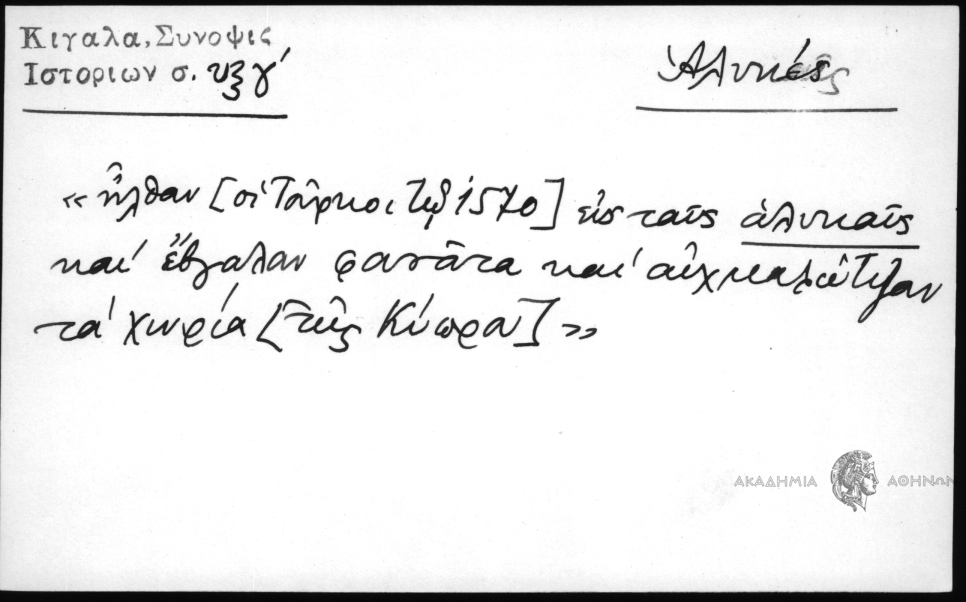 Κιγαλα, Συνοψις
Ιστοριων σ. υξγ΄
Ἁλυκές
«ἦλθαν [οἱ Τοῦρκοι τῷ 1570] εἰς ταῖς ἁλυκαῖς
καὶ ἔβγαλαν φουσᾶτα καὶ αἰχμαλώτιζαν
τὰ χωρία [τῆς Κύπρου]»
ΑΚΑΔΗΜΙΑ ΑΘΗΝΩΝ